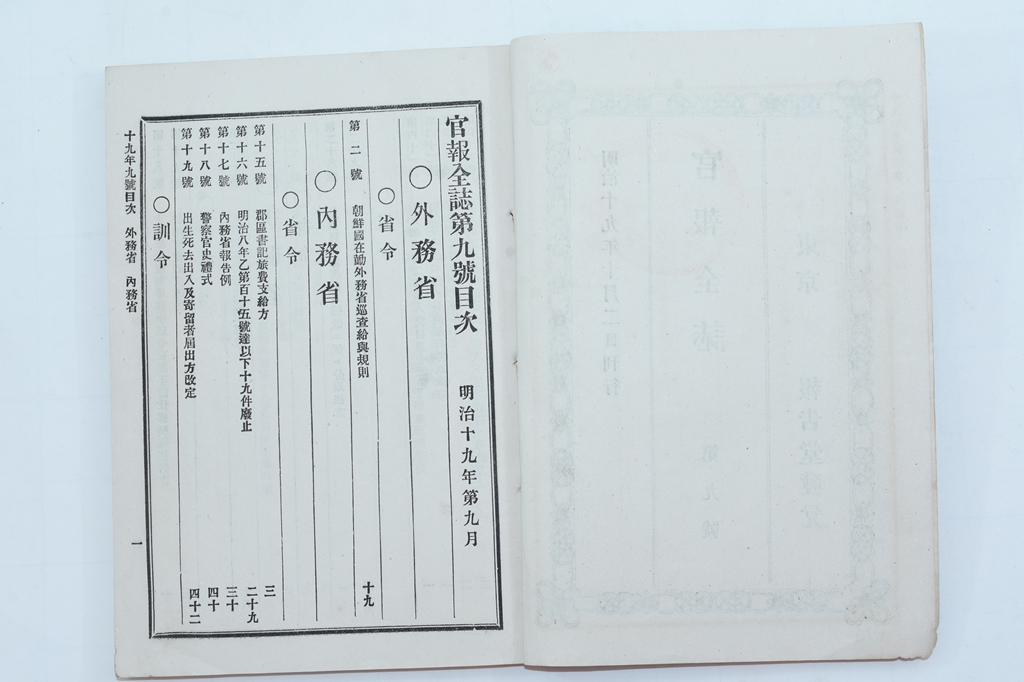 官報全誌第九號目次　明治十九年第九月
〇外務省
〇省令
第二號　朝鮮國在勤外務省巡查給與規則　十九
〇內務省
〇省令
第十五號　郡區書記旅費支給方　三
第十六號　明治八年乙第百十五號達以下十九件廢止　二十九
第十七號　內務省報告例　三十
第十八號　警察官吏禮式　四十
第十九號　出生死去出入及寄留者屆出方改定　四十二
〇訓令
十九年九號目次　外務省　內務省　一